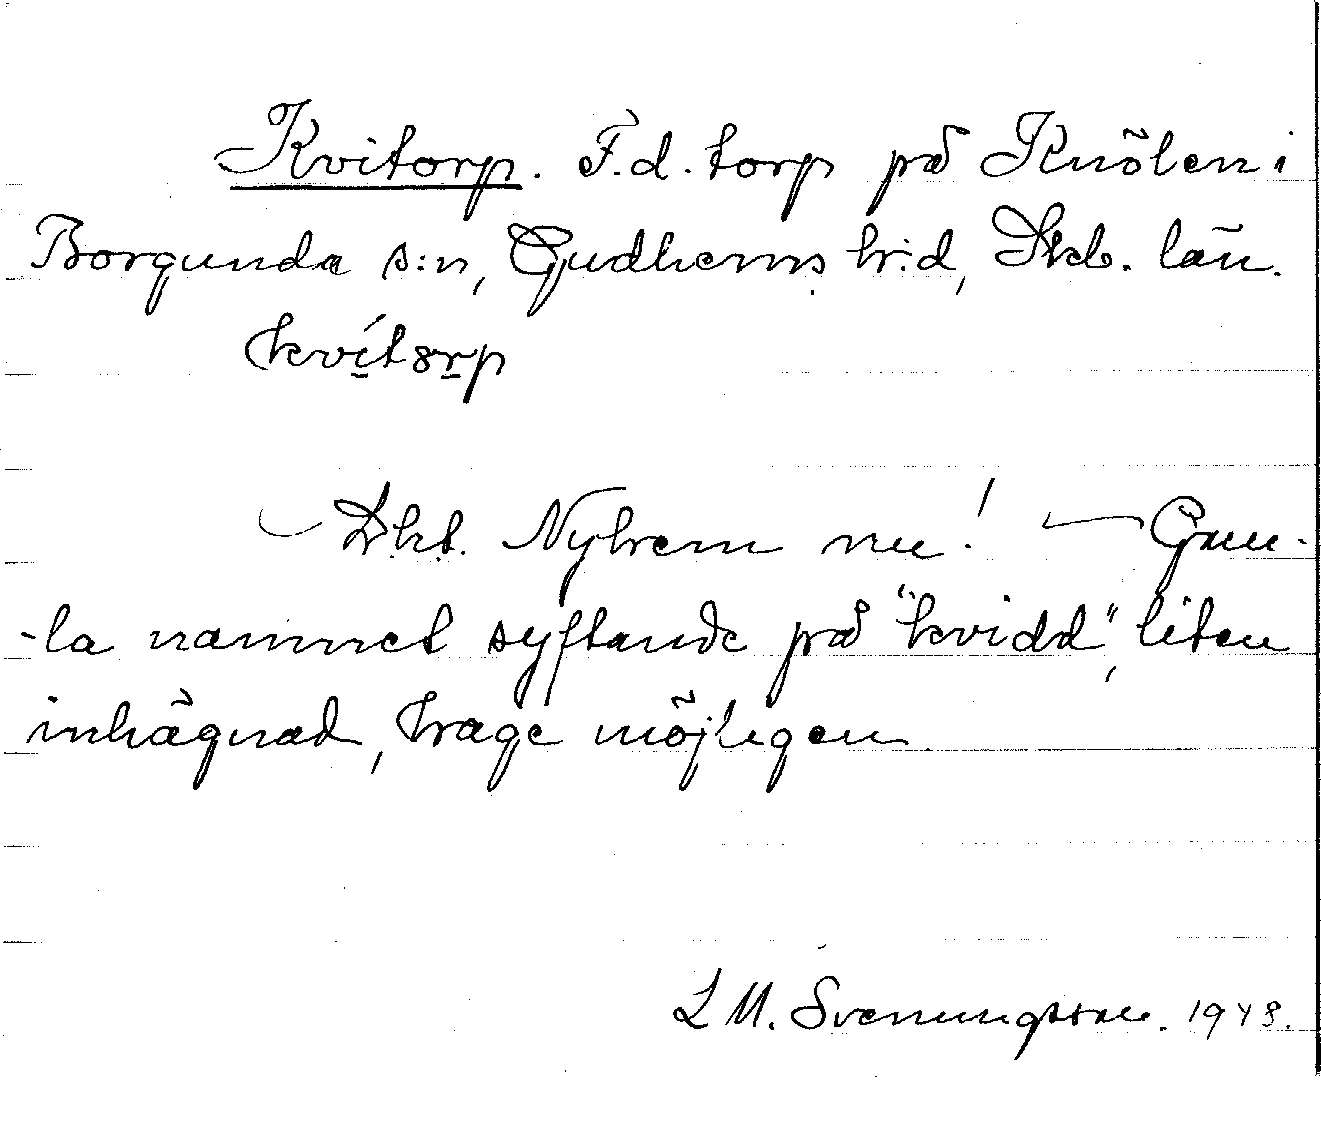 Kvitorp. F.d. torp på Knölen i
Borgunda s:n, Gudhems hr:d, Skb. län.
kvítorp
Dkt. Nyhem nu! — Gam-
-la namnet syftande på "kvidd", liten
inhägnad, hage möjligen
L M. Svenungsson. 1948.